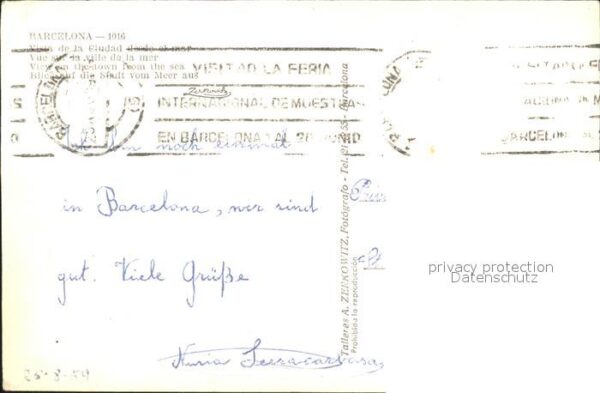 BARCELONA — 1016
Vista de la Ciudad desde el mar
Vue sur la ville de la mer
View on the town from the sea
Blick auf die Stadt vom Meer aus
VISITAD LA FERIA
INTERNACIONAL DE MUESTRAS
EN BARCELONA 1 AL 20 JUNIO
BARCELONA
Zerkowitz
noch einmal
in Barcelona, wer sind
gut. Viele Grüße
Nuria
Talleres A. ZERKOWITZ, Fotógrafo - Barcelona
Prohibida la reproducción
BARCELONA
privacy protection
Datenschutz